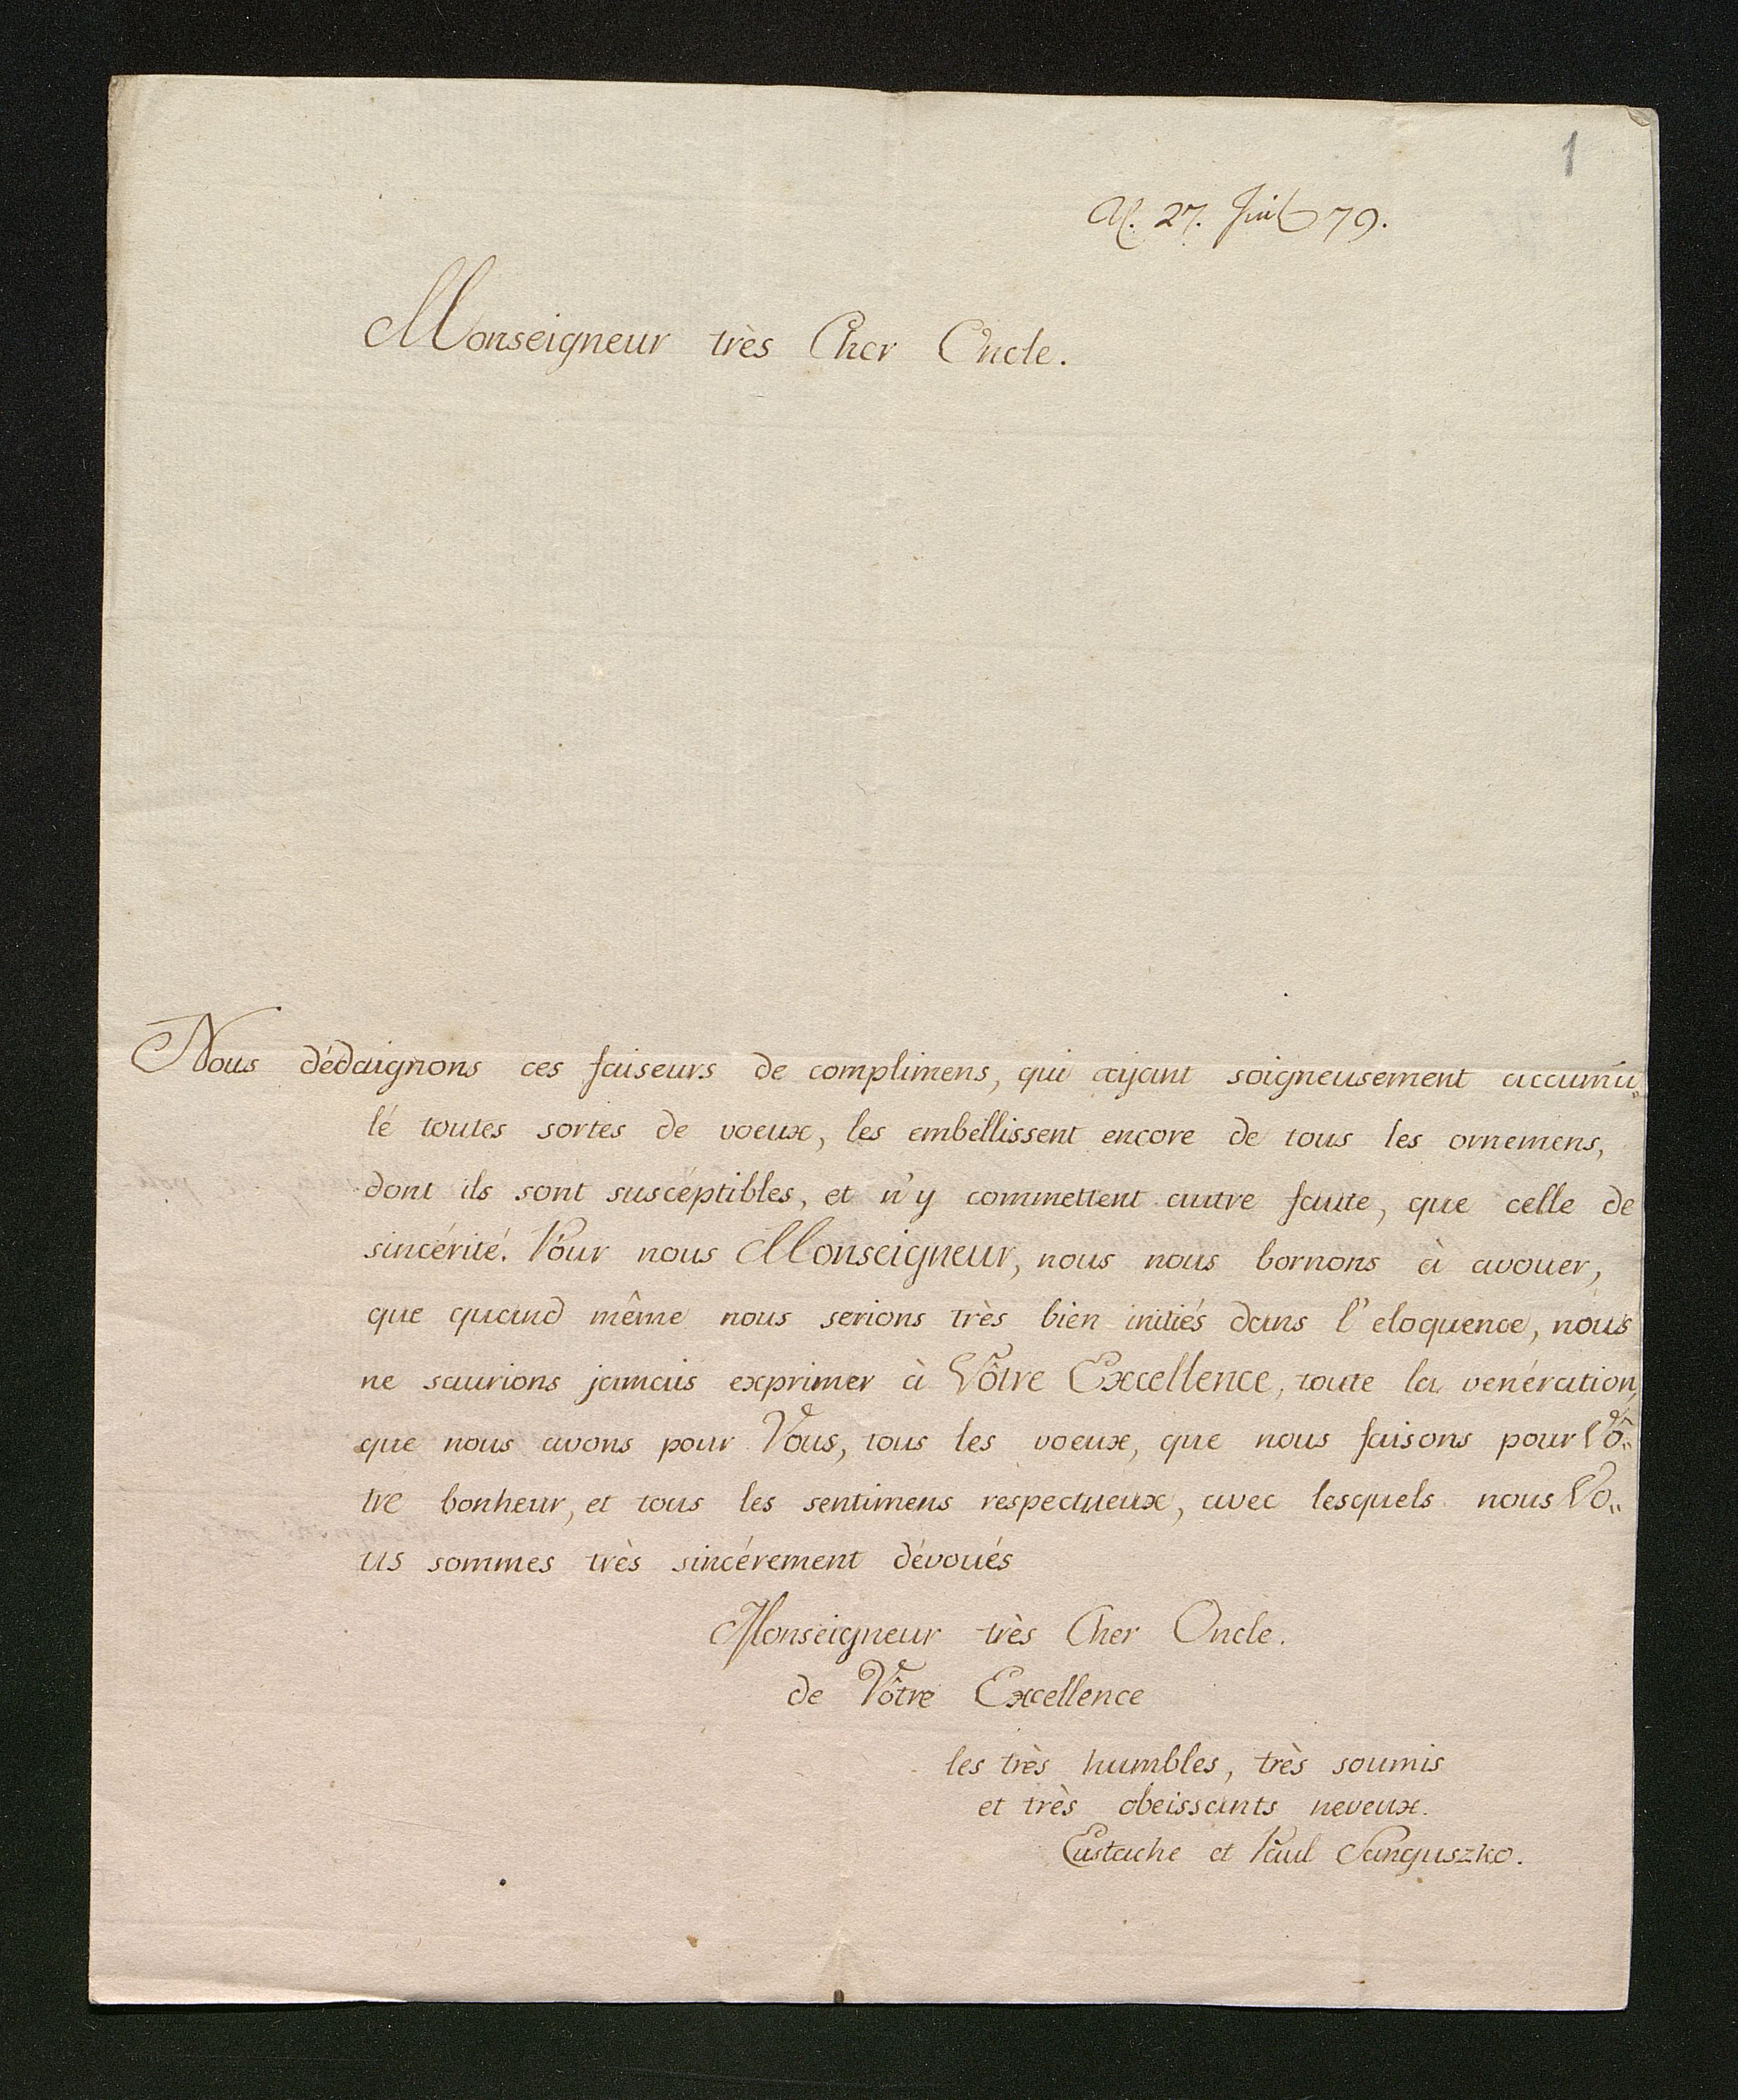 1
27. Juil 79.
Monseigneur très Cher Oncle.
Nous dédaignons ces faiseurs de complimens, qui ayant soigneusement accumu„
lé toutes sortes de voeux, les embellissent encore de tous les ornemens,
dont ils sont suscéptibles, et n'y commettent autre faute, que celle de
sincérité. Pour nous Monseigneur, nous nous bornons à avouer,
que quand même nous serions très bien initiés dans l'eloquence, nous
ne saurions jamais exprimer à Vôtre Excellence, toute la venération,
que nous avons pour Vous, tous les voeux, que nous faisons pour Vô„
tre bonheur, et tous les sentimens respectueux, avec lesquels nous Vo„
us sommes très sincérement dévoués
Monseigneur très Cher Oncle.
de Vôtre Excellence
les très humbles, très soumis
et très obeissants neveux.
Eustache et Paul Sanguszko.